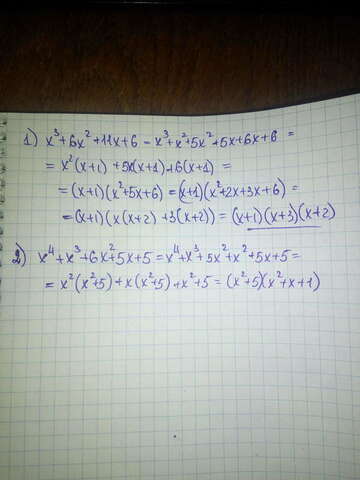 1) x³+6x²+11x+6 - x³+x²+5x²+5x+6x+6 =
= x²(x+1) +5x(x+1)+6(x+1) =
= (x+1)(x²+5x+6) = (x+1)(x²+2x+3x+6) =
= (x+1)(x(x+2) +3(x+2)) = (x+1)(x+3)(x+2)
2) x⁴+x³+6x²+5x+5 = x⁴+x³+5x²+x²+5x+5 =
= x²(x²+5)+x(x²+5)+x²+5 = (x²+5)(x²+x+1)